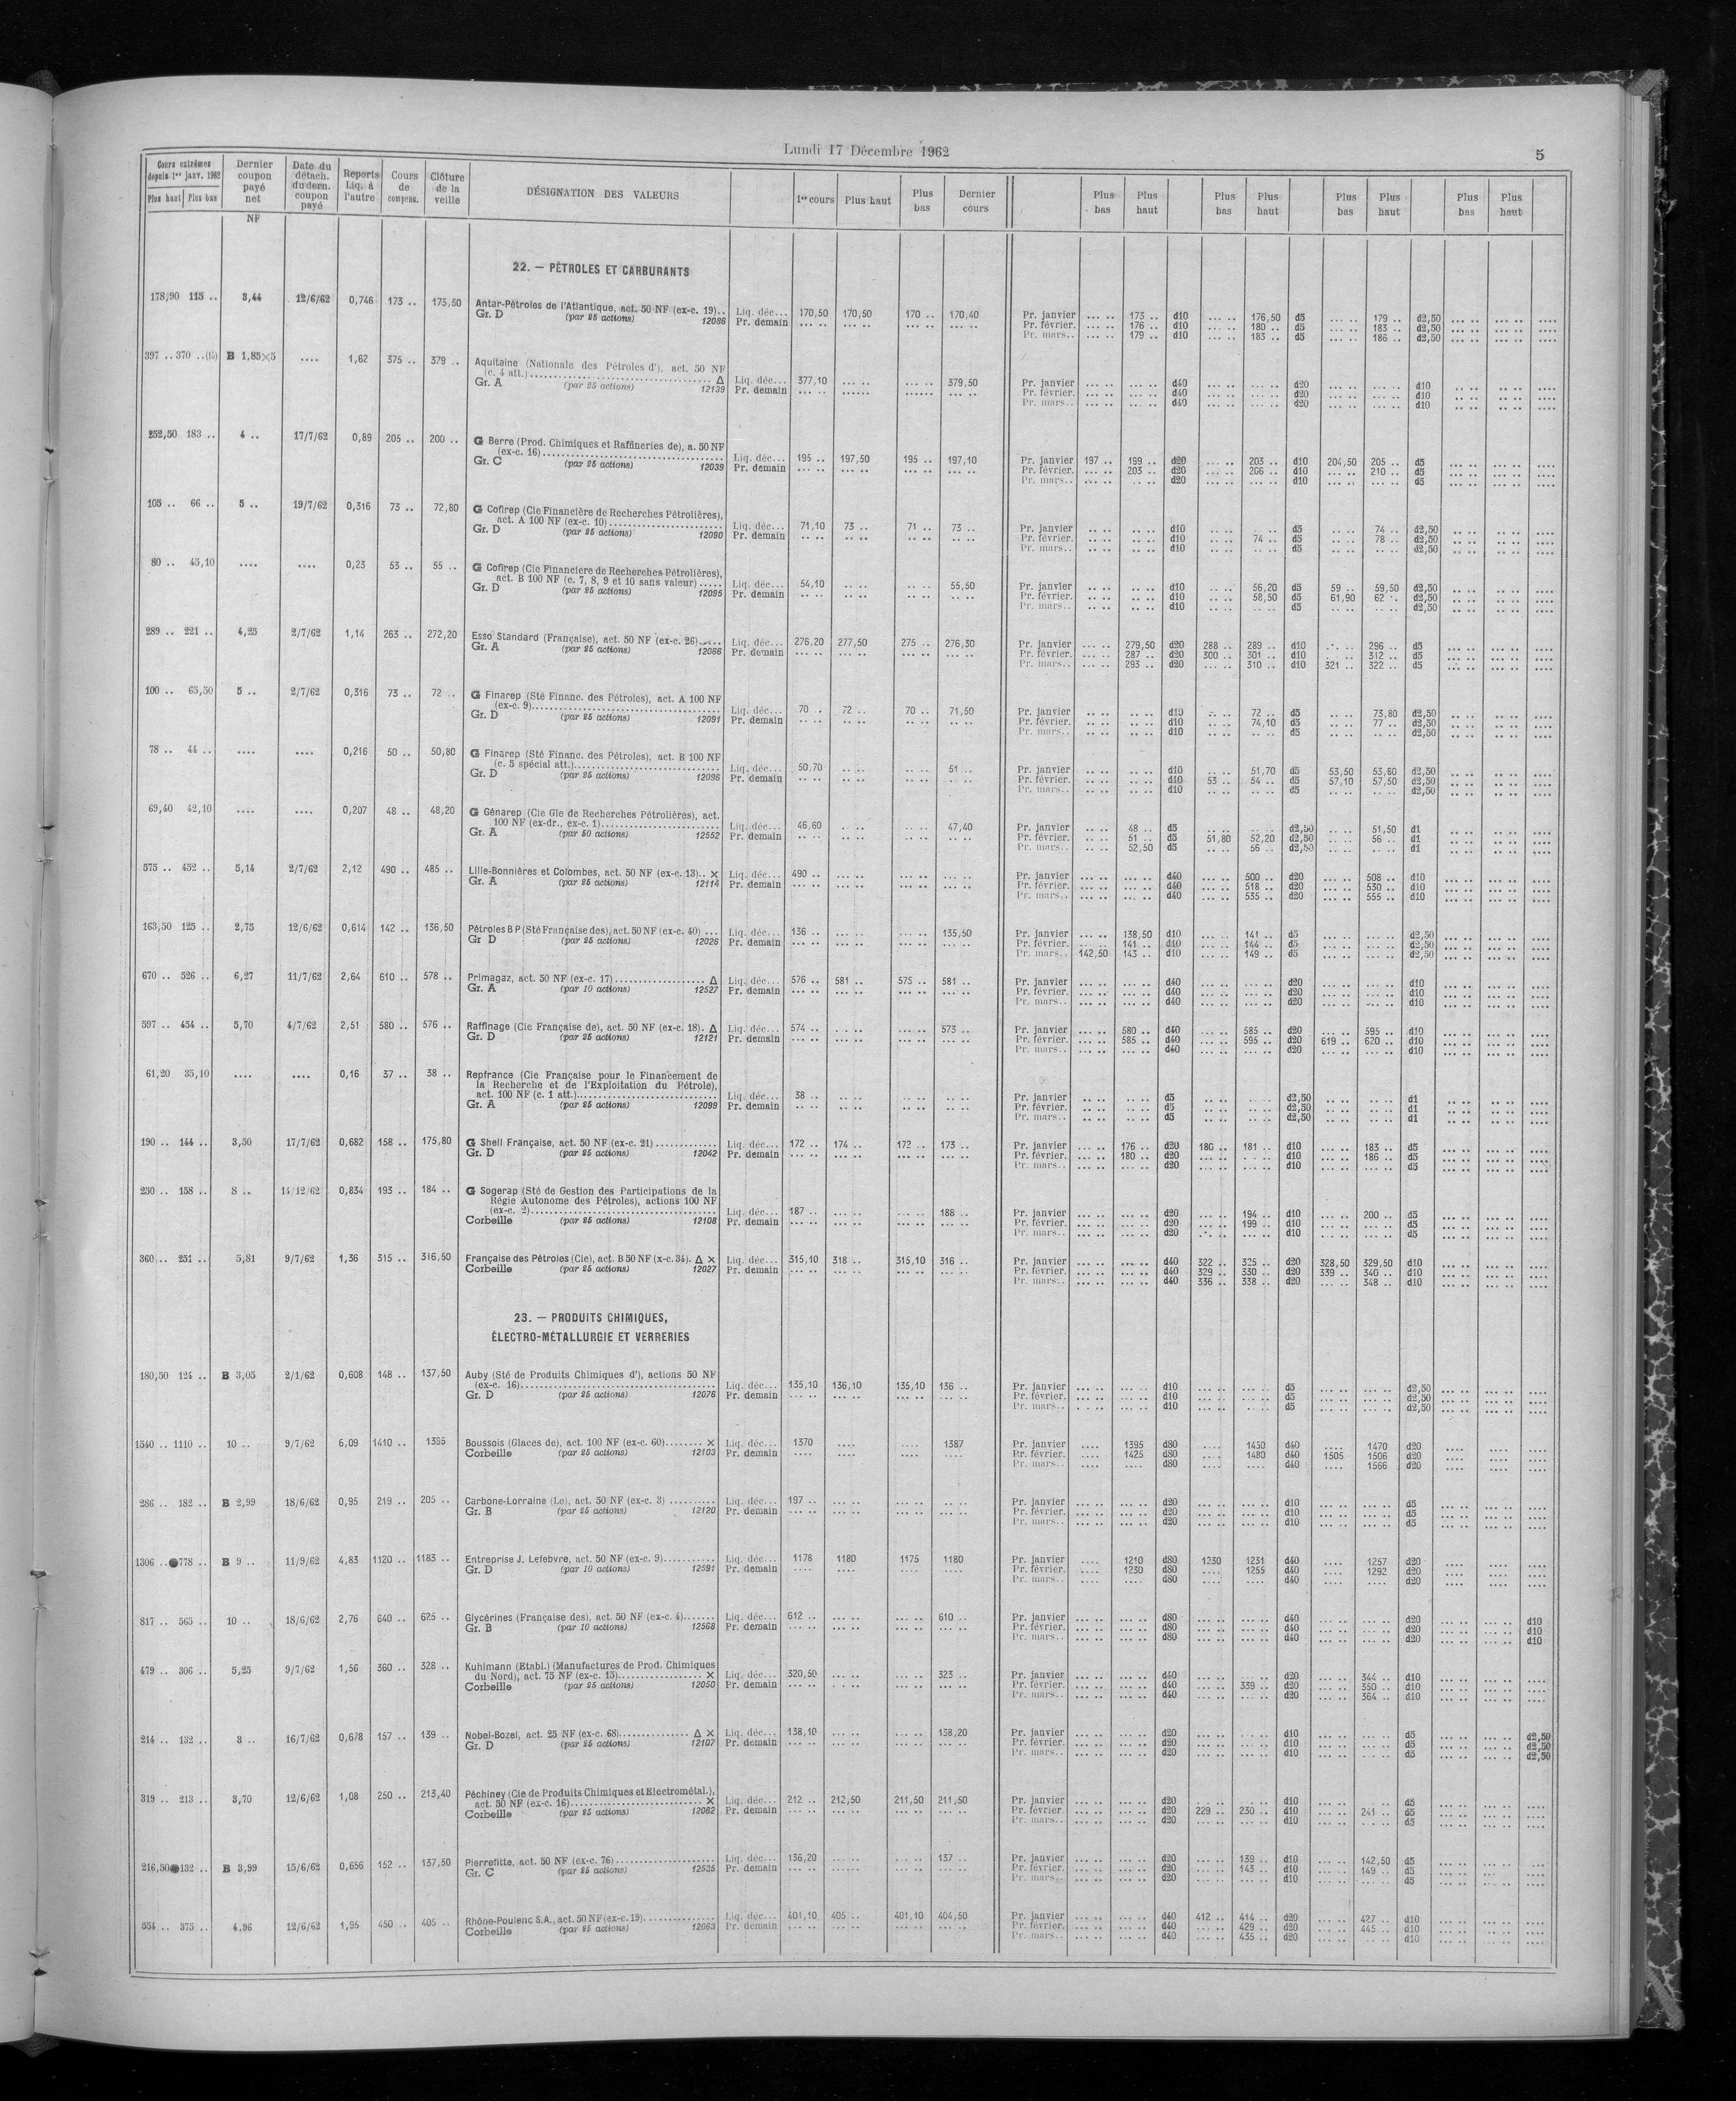 Lundi 17 Décembre 1962
5
Cours extrêmes depuis 1er janv. 1962 Plus haut Plus bas
Dernier coupon payé net
Date du détach. du dern. coupon payé
Reports Liq. à l'autre
Cours de compens.
Clôture de la veille
DÉSIGNATION DES VALEURS
1er cours Plus haut Plus bas Dernier cours
Plus bas Plus haut Plus bas Plus haut Plus bas Plus haut Plus bas Plus haut
NF
22. — PÉTROLES ET CARBURANTS
178,90 115 .. 3,44 12/6/62 0,746 173 .. 175,50 Antar-Pétroles de l'Atlantique, act. 50 NF (ex-c. 19)..
Gr. D (par 25 actions) 12086
Liq. déc... 170,50 170,50 170 .. 170,40
Pr. demain
Pr. janvier 173 .. d10 176,50 d5 179 .. d2,50
Pr. février. 176 .. d10 180 .. d5 183 .. d2,50
Pr. mars.. 179 .. d10 183 .. d5 186 .. d2,50
397 .. 370 ..(15) B 1,85×5 .... 1,62 375 .. 379 .. Aquitaine (Nationale des Pétroles d'), act. 50 NF
(c. 4 att.) Δ
Gr. A (par 25 actions) 12139
Liq. déc... 377,10 379,50
Pr. demain
Pr. janvier d40 d20 d10
Pr. février. d40 d20 d10
Pr. mars.. d40 d20 d10
252,50 183 .. 4 .. 17/7/62 0,89 205 .. 200 .. G Berre (Prod. Chimiques et Raffineries de), a. 50 NF
(ex-c. 16)
Gr. C (par 25 actions) 12039
Liq. déc... 195 .. 197,50 195 .. 197,10
Pr. demain
Pr. janvier 197 .. 199 .. d20 203 .. d10 204,50 205 .. d5
Pr. février. 203 .. d20 206 .. d10 210 .. d5
Pr. mars.. d20 d10 d5
105 .. 66 .. 5 .. 19/7/62 0,316 73 .. 72,80 G Cofirep (Cie Financière de Recherches Pétrolières),
act. A 100 NF (ex-c. 10)
Gr. D (par 25 actions) 12090
Liq. déc... 71,10 73 .. 71 .. 73 ..
Pr. demain
Pr. janvier d10 d5 74 .. d2,50
Pr. février. d10 74 .. d5 78 .. d2,50
Pr. mars.. d10 d5 d2,50
80 .. 45,10 .... .... 0,23 53 .. 55 .. G Cofirep (Cie Financiere de Recherches Pétrolières),
act. B 100 NF (c. 7, 8, 9 et 10 sans valeur)
Gr. D (par 25 actions) 12095
Liq. déc... 54,10 55,50
Pr. demain
Pr. janvier d10 56,20 d5 59 .. 59,50 d2,50
Pr. février. d10 58,50 d5 61,90 62 .. d2,50
Pr. mars.. d10 d5 d2,50
289 .. 221 .. 4,25 2/7/62 1,14 263 .. 272,20 Esso Standard (Française), act. 50 NF (ex-c. 26)
Gr. A (par 25 actions) 12066
Liq. déc... 276,20 277,50 275 .. 276,30
Pr. demain
Pr. janvier 279,50 d20 288 .. 289 .. d10 296 .. d5
Pr. février. 287 .. d20 300 .. 301 .. d10 312 .. d5
Pr. mars.. 293 .. d20 310 .. d10 321 .. 322 .. d5
100 .. 65,50 5 .. 2/7/62 0,316 73 .. 72 .. G Finarep (Sté Financ. des Pétroles), act. A 100 NF
(ex-c. 9)
Gr. D (par 25 actions) 12091
Liq. déc... 70 .. 72 .. 70 .. 71,50
Pr. demain
Pr. janvier d10 72 .. d5 73,80 d2,50
Pr. février. d10 74,10 d5 77 .. d2,50
Pr. mars.. d10 d5 d2,50
78 .. 44 .. .... .... 0,216 50 .. 50,80 G Finarep (Sté Financ. des Pétroles), act. B 100 NF
(c. 5 spécial att.)
Gr. D (par 25 actions) 12096
Liq. déc... 50,70 51 ..
Pr. demain
Pr. janvier d10 51,70 d5 53,50 53,80 d2,50
Pr. février. d10 53 .. 54 .. d5 57,10 57,50 d2,50
Pr. mars.. d10 d5 d2,50
69,40 42,10 .... .... 0,207 48 .. 48,20 G Génarep (Cie Gle de Recherches Pétrolières), act.
100 NF (ex-dr., ex-c. 1)
Gr. A (par 50 actions) 12552
Liq. déc... 46,60 47,40
Pr. demain
Pr. janvier 48 .. d5 d2,50 51,50 d1
Pr. février. 51 .. d5 51,80 52,20 d2,50 56 .. d1
Pr. mars.. 52,50 d5 56 .. d2,50 d1
575 .. 452 .. 5,14 2/7/62 2,12 490 .. 485 .. Lille-Bonnières et Colombes, act. 50 NF (ex-c. 13).. ×
Gr. A (par 25 actions) 12114
Liq. déc... 490 ..
Pr. demain
Pr. janvier d40 500 .. d20 508 .. d10
Pr. février. d40 518 .. d20 530 .. d10
Pr. mars.. d40 535 .. d20 555 .. d10
163,50 125 .. 2,75 12/6/62 0,614 142 .. 136,50 Pétroles B P (Sté Française des), act. 50 NF (ex-c. 40) ...
Gr D (par 25 actions) 12026
Liq. déc... 136 .. 135,50
Pr. demain
Pr. janvier 138,50 d10 141 .. d5 d2,50
Pr. février. 141 .. d10 144 .. d5 d2,50
Pr. mars.. 142,50 143 .. d10 149 .. d5 d2,50
670 .. 526 .. 6,27 11/7/62 2,64 610 .. 578 .. Primagaz, act. 50 NF (ex-c. 17) Δ
Gr. A (par 10 actions) 12527
Liq. déc... 576 .. 581 .. 575 .. 581 ..
Pr. demain
Pr. janvier d40 d20 d10
Pr. février. d40 d20 d10
Pr. mars.. d40 d20 d10
597 .. 454 .. 5,70 4/7/62 2,51 580 .. 576 .. Raffinage (Cie Française de), act. 50 NF (ex-c. 18). Δ
Gr. D (par 25 actions) 12121
Liq. déc... 574 .. 573 ..
Pr. demain
Pr. janvier 580 .. d40 585 .. d20 595 .. d10
Pr. février. 585 .. d40 595 .. d20 619 .. 620 .. d10
Pr. mars.. d40 d20 d10
61,20 35,10 .... .... 0,16 37 .. 38 .. Repfrance (Cie Française pour le Financement de
la Recherche et de l'Exploitation du Pétrole),
act. 100 NF (c. 1 att.)
Gr. A (par 25 actions) 12099
Liq. déc... 38 ..
Pr. demain
Pr. janvier d5 d2,50 d1
Pr. février. d5 d2,50 d1
Pr. mars.. d5 d2,50 d1
190 .. 144 .. 3,50 17/7/62 0,682 158 .. 175,80 G Shell Française, act. 50 NF (ex-c. 21)
Gr. D (par 25 actions) 12042
Liq. déc... 172 .. 174 .. 172 .. 173 ..
Pr. demain
Pr. janvier 176 .. d20 180 .. 181 .. d10 183 .. d5
Pr. février. 180 .. d20 d10 186 .. d5
Pr. mars.. d20 d10 d5
250 .. 158 .. 8 .. 14/12/62 0,834 193 .. 184 .. G Sogerap (Sté de Gestion des Participations de la
Régie Autonome des Pétroles), actions 100 NF
(ex-c. 2)
Corbeille (par 25 actions) 12108
Liq. déc... 187 .. 188 ..
Pr. demain
Pr. janvier d20 194 .. d10 200 .. d5
Pr. février. d20 199 .. d10 d5
Pr. mars.. d20 d10 d5
360 .. 251 .. 5,81 9/7/62 1,36 315 .. 316,50 Française des Pétroles (Cie), act. B 50 NF (x-c. 34). Δ ×
Corbeille (par 25 actions) 12027
Liq. déc... 315,10 318 .. 315,10 316 ..
Pr. demain
Pr. janvier d40 322 .. 325 .. d20 328,50 329,50 d10
Pr. février. d40 329 .. 330 .. d20 339 .. 340 .. d10
Pr. mars.. d40 336 .. 338 .. d20 348 .. d10
23. — PRODUITS CHIMIQUES,
ÉLECTRO-MÉTALLURGIE ET VERRERIES
180,50 124 .. B 3,05 2/1/62 0,608 148 .. 137,50 Auby (Sté de Produits Chimiques d'), actions 50 NF
(ex-c. 16)
Gr. D (par 25 actions) 12076
Liq. déc... 135,10 136,10 135,10 136 ..
Pr. demain
Pr. janvier d10 d5 d2,50
Pr. février. d10 d5 d2,50
Pr. mars.. d10 d5 d2,50
1540 .. 1110 .. 10 .. 9/7/62 6,09 1410 .. 1395 Boussois (Glaces de), act. 100 NF (ex-c. 60) ×
Corbeille (par 25 actions) 12103
Liq. déc... 1370 1387
Pr. demain
Pr. janvier 1395 d80 1450 d40 1470 d20
Pr. février. 1425 d80 1480 d40 1505 1506 d20
Pr. mars.. d80 d40 1566 d20
286 .. 182 .. B 2,99 18/6/62 0,95 219 .. 205 .. Carbone-Lorraine (Le), act. 50 NF (ex-c. 3)
Gr. B (par 25 actions) 12120
Liq. déc... 197 ..
Pr. demain
Pr. janvier d20 d10 d5
Pr. février. d20 d10 d5
Pr. mars.. d20 d10 d5
1306 .. ●778 .. B 9 .. 11/9/62 4,83 1120 .. 1183 .. Entreprise J. Lefebvre, act. 50 NF (ex-c. 9)
Gr. D (par 10 actions) 12591
Liq. déc... 1178 1180 1175 1180
Pr. demain
Pr. janvier 1210 d80 1230 1231 d40 1257 d20
Pr. février. 1230 d80 1255 d40 1292 d20
Pr. mars.. d80 d40 d20
817 .. 565 .. 10 .. 18/6/62 2,76 640 .. 625 .. Glycérines (Française des), act. 50 NF (ex-c. 4)
Gr. B (par 10 actions) 12568
Liq. déc... 612 .. 610 ..
Pr. demain
Pr. janvier d80 d40 d20 d10
Pr. février. d80 d40 d20 d10
Pr. mars.. d80 d40 d20 d10
479 .. 306 .. 5,25 9/7/62 1,56 360 .. 328 .. Kuhlmann (Etabl.) (Manufactures de Prod. Chimiques
du Nord), act. 75 NF (ex-c. 15) ×
Corbeille (par 25 actions) 12050
Liq. déc... 320,50 323 ..
Pr. demain
Pr. janvier d40 d20 344 .. d10
Pr. février. d40 339 .. d20 350 .. d10
Pr. mars.. d40 d20 364 .. d10
214 .. 132 .. 3 .. 16/7/62 0,678 157 .. 139 .. Nobel-Bozel, act. 25 NF (ex-c. 68) Δ ×
Gr. D (par 25 actions) 12107
Liq. déc... 138,10 138,20
Pr. demain
Pr. janvier d20 d10 d5 d2,50
Pr. février. d20 d10 d5 d2,50
Pr. mars.. d20 d10 d5 d2,50
319 .. 213 .. 3,70 12/6/62 1,08 250 .. 213,40 Péchiney (Cie de Produits Chimiques et Electrométal.),
act. 50 NF (ex-c. 16) ×
Corbeille (par 25 actions) 12062
Liq. déc... 212 .. 212,50 211,50 211,50
Pr. demain
Pr. janvier d20 d10 d5
Pr. février. d20 229 .. 230 .. d10 241 .. d5
Pr. mars.. d20 d10 d5
216,50 ●132 .. B 3,99 15/6/62 0,656 152 .. 137,50 Pierrefitte, act. 50 NF (ex-c. 76)
Gr. C (par 25 actions) 12535
Liq. déc... 136,20 137 ..
Pr. demain
Pr. janvier d20 139 .. d10 142,50 d5
Pr. février. d20 143 .. d10 149 .. d5
Pr. mars.. d20 d10 d5
554 .. 375 .. 4,96 12/6/62 1,95 450 .. 405 .. Rhône-Poulenc S.A., act. 50 NF (ex-c. 19)
Corbeille (par 25 actions) 12063
Liq. déc... 401,10 405 .. 401,10 404,50
Pr. demain
Pr. janvier d40 412 .. 414 .. d20 427 .. d10
Pr. février. d40 429 .. d20 445 .. d10
Pr. mars.. d40 435 .. d20 d10